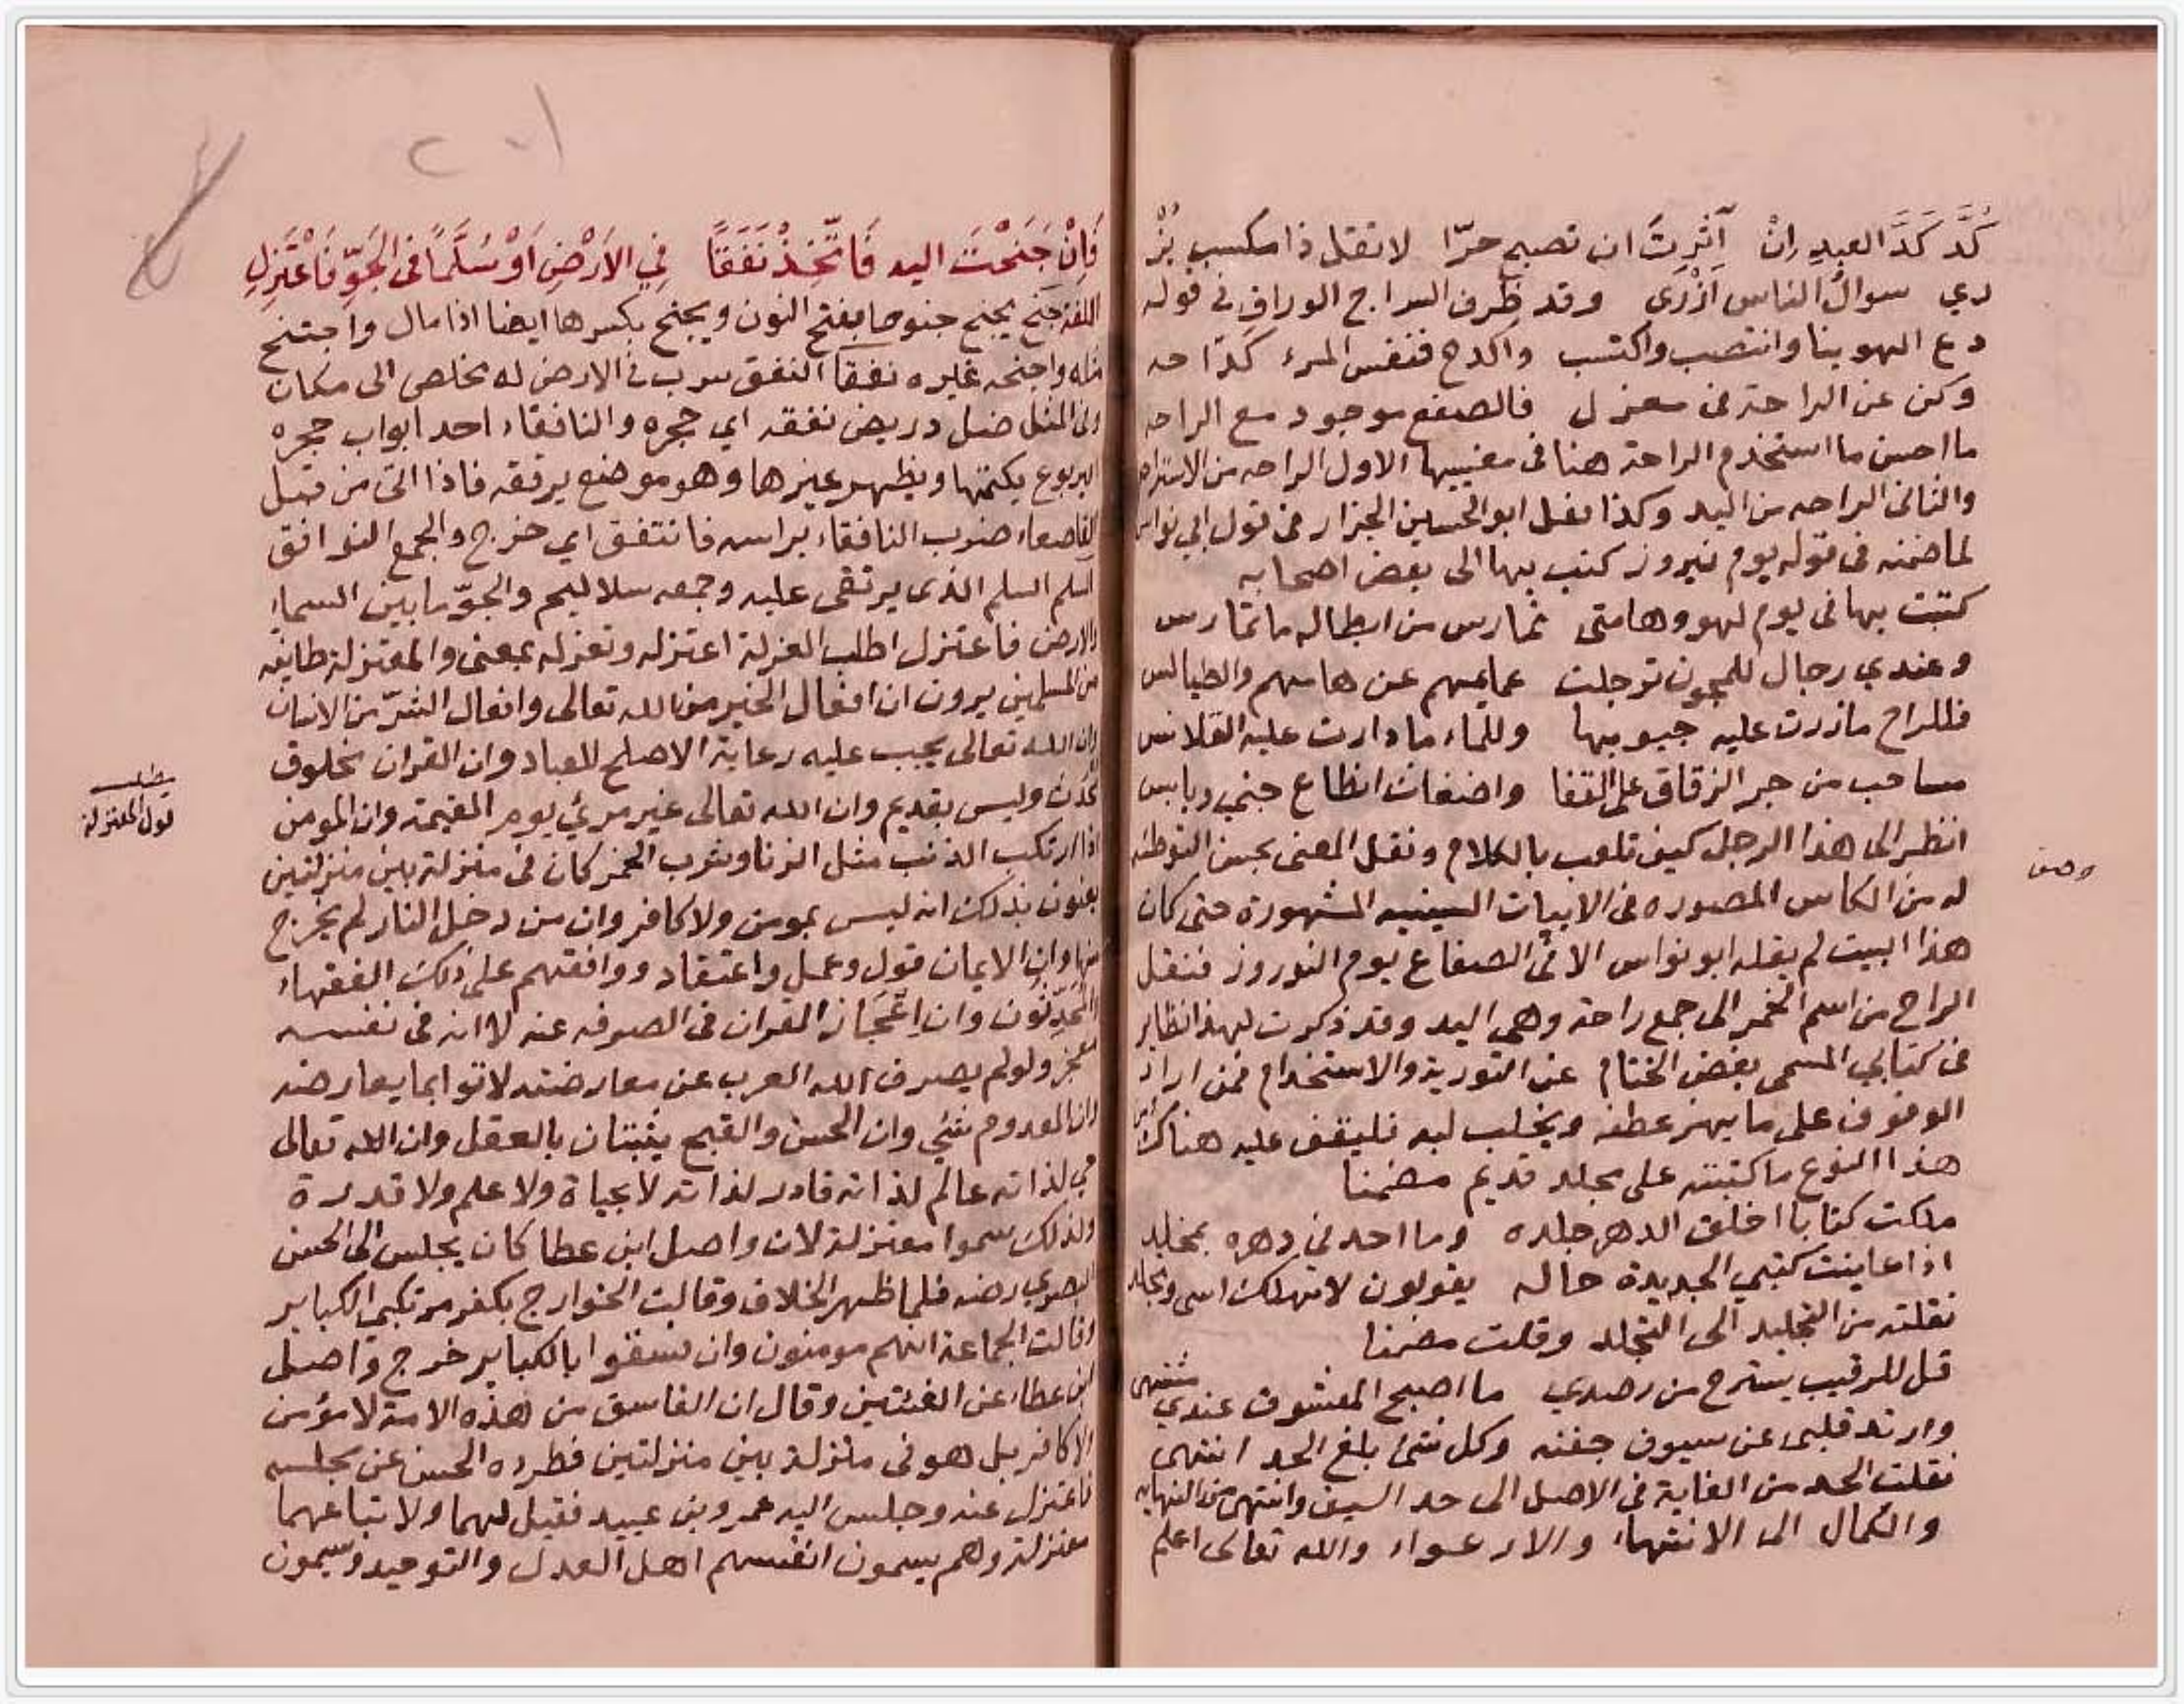 كُدَّ كَدَّ العبدِ اِنْ آثرتَ ان تصبح حرّا لا تقل ذا مكسب يُزْ
ري سوالُ الناس اَزْرى وقد ظرف السراج الوراق في قوله
دع الهوينا وانتصب واكتسب واكدح فنفس المرء كدّاحه
وكن عن الراحة في معزل فالصفع موجود مع الراحه
ما احسن ما استخدم الراحة هنا في معنييها الاول الراحه من الاستراحه
والثاني الراحه من اليد وكذا نقل ابو الحسين الجزار في قول ابي نواس
لما ضمنه في قوله يوم نيروز كتب بها الى بعض اصحابه
كتبت بها في يوم لهو وهامتي تمارس من ابطاله ما تمارس
وعندي رجال للمجون ترجلت عمايمهم عن هامهم والطيالس
فللراح مازرت عليه جيوبها وللماء ما دارت عليه القلانس
مساحب من جر الزقاق على القفا واضغاث انطاع جني ويابس
انظر الى هذا الرجل كيف تلعب بالكلام ونقل المعنى بحسن التوطئه
له من الكاس المصوره في الابيات السينيه المشهورة حتى كان
هذا البيت لم يقله ابو نواس الا في الصفاع يوم النوروز فنقل
الراح من اسم الخمر الى جمع راحة وهي اليد وقد ذكرت لهذا نظاير
في كتابي المسمى بفض الختام عن التورية والاستخدام فمن اراد
الوقوف على ما يهز عطفه ويخلب لبه فليقف عليه هناك ومن
هذا النوع ما كتبته على مجلد قديم مضمنا
ملكت كتابا اخلق الدهر جلده وما احد في دهره بمخلد
اذا عاينت كتبي الجديدة حاله يقولون لا تهلك اسى وتجلد
نقلته من التجليد الى التجلد وقلت مضمنا
قل للرقيب يسترح من رصدي ما اصبح المعشوق عندي مشتهى
وارتد قلبي عن سيوف جفنه وكل شئ بلغ الحد انتهى
نقلت الحد من الغاية في الاصل الى حد السيف وانتهى من النهايه
والكمال الى الانتهاء والارعواء والله تعالى اعلم
وصف
فَاِنْ جَنَحْتَ اليه فَاتَّخِذْ نَفَقًا فِي الاَرْضِ اَوْ سُلَّمًا في الجَوِّ فَاعْتَزِلِ
اللغه جَنح يجنح جنوحا بفتح النون ويجنح بكسرها ايضا اذا مال واجتنح
مثله واجنحه غيره نفقا النفق سرب في الارض له مخلص الى مكان
وفي المثل ضل دريص نفقه اي جحره والنافقاء احد ابواب جحره
اليربوع يكتمها ويظهر غيرها وهو موضع يرققه فاذا اتى من قبل
القاصعاء ضرب النافقاء براسه فانتفق اي خرج والجمع النوافق
السلم السلم الذي يرتقى عليه وجمعه سلاليم والجوّ ما بين السماء
والارض فاعتزل اطلب العزلة اعتزله وتعزله بمعنى والمعتزلة طايفه
من المسلمين يرون ان افعال الخير من الله تعالى وافعال الشرّ من الانسان
وان الله تعالى يجب عليه رعاية الاصلح للعباد وان القران مخلوق
محدث وليس بقديم وان الله تعالى غير مرئي يوم القيمة وان المومن
اذا ارتكب الذنب مثل الزنا وشرب الخمر كان في منزلة بين منزلتين
يعنون بذلك انه ليس بمومن ولا كافر وان من دخل النار لم يخرج
منها وان الايمان قول وعمل واعتقاد ووافقهم على ذلك الفقهاء
المحدّثون وان اِعْجَاز القران في الصرفه عنه لا انه في نفسه
معجز ولو لم يصرف الله العرب عن معارضته لاتوا بما يعارضه
وان المعدوم شئ وان الحسن والقبح يثبتان بالعقل وان الله تعالى
حي لذاته عالم لذاته قادر لذاته لا بحياة ولا علم ولا قدرة
ولذلك سموا معتزلة لان واصل ابن عطا كان يجلس الى الحسن
البصري رضه فلما ظهر الخلاف وقالت الخوارج بكفر مرتكبي الكباير
وقالت الجماعة انهم مومنون وان فسقوا بالكباير خرج واصل
ابن عطاء عن الفئتين وقال ان الفاسق من هذه الامة لا مؤمن
ولا كافر بل هو في منزلة بين منزلتين فطرده الحسن عن مجلسه
فاعتزل عنه وجلس اليه عمرو بن عبيد فقيل لهما ولاتباعهما
معتزلة وهم يسمون انفسهم اهل العدل والتوحيد ويسمون
مطلب
قول المعتزلة
٢٠١